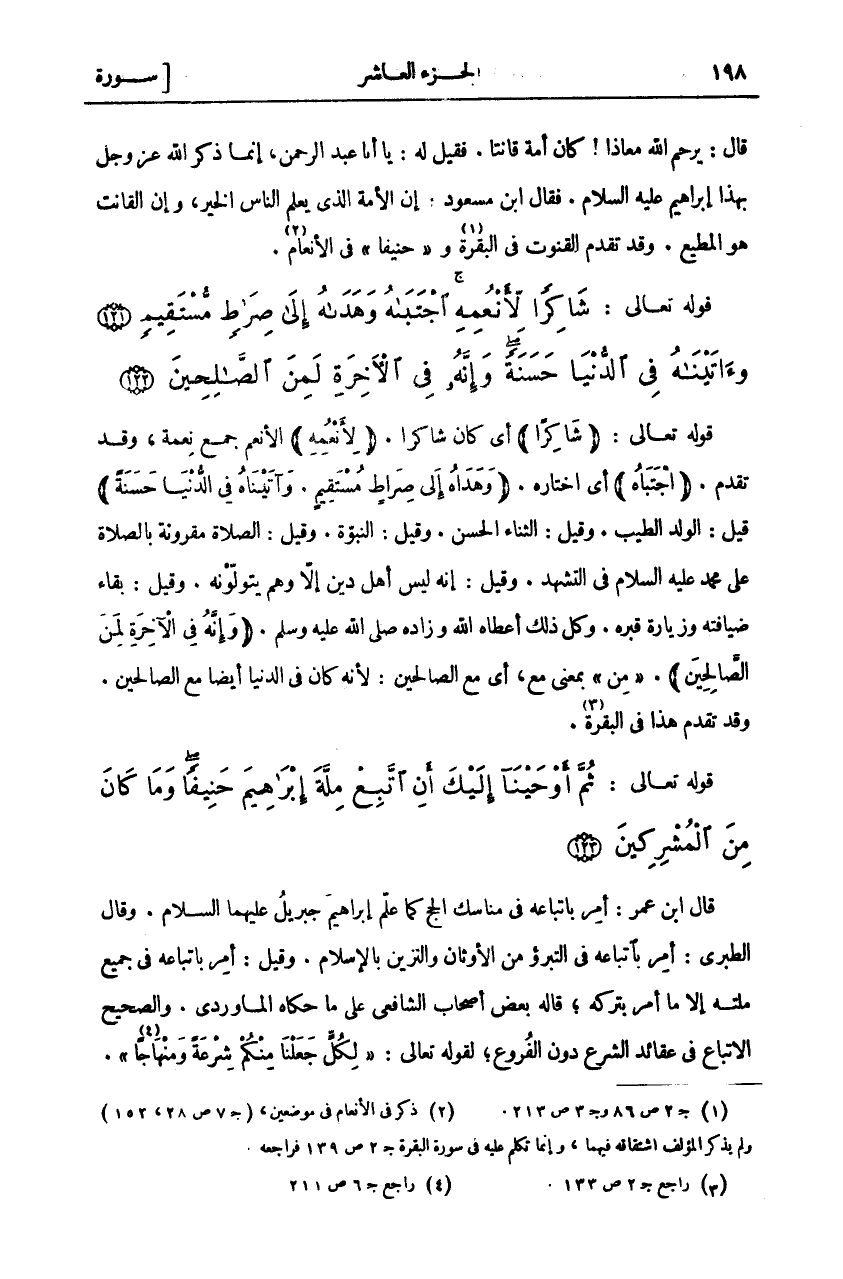 ١٩٨ الجـزء العـاشر [ ســورة
قال : يرحم الله معاذا ! كان أمة قانتا . فقيل له : يا أبا عبد الرحمن، إنمـا ذكر الله عز وجل
بهذا إبراهيم عليه السلام . فقال ابن مسعود : إن الأمة الذى يعلم الناس الخير، وإن القانت
هو المطيع . وقد تقدم القنوت فى البقرة(١) و « حنيفا » فى الأنعام(٢) .
قوله تعـالى : شَاكِرًا لِّأَنْعُمِهِۚ ٱجْتَبَىٰهُ وَهَدَىٰهُ إِلَىٰ صِرَٰطٍ مُّسْتَقِيمٍ ﴿١٢١﴾
وَءَاتَيْنَٰهُ فِى ٱلدُّنْيَا حَسَنَةًۖ وَإِنَّهُۥ فِى ٱلْأَخِرَةِ لَمِنَ ٱلصَّٰلِحِينَ ﴿١٢٢﴾
قوله تعـالى : ﴿ شَاكِرًا ﴾ أى كان شاكرا . ﴿ لِأَنْعُمِهِ ﴾ الأنعم جمـع نعمة ، وقـد
تقدم . ﴿ اجْتَبَاهُ ﴾ أى اختاره . ﴿ وَهَدَاهُ إِلَى صِرَاطٍ مُسْتَقِيمٍ . وَآتَيْنَاهُ فِى الدُّنْيَـا حَسَنَةً ﴾
قيل : الولد الطيب . وقيل : الثناء الحسن . وقيل : النبوّة . وقيل : الصلاة مقرونة بالصلاة
على محمد عليه السلام فى التشهد . وقيل : إنه ليس أهل دين إلّا وهم يتولّوْنه . وقيل : بقاء
ضيافته وزيارة قبره . وكل ذلك أعطاه الله وزاده صلى الله عليه وسلم . ﴿ وَإِنَّهُ فِى الْآخِرَةِ لَمِنَ
الصَّالِحِينَ ﴾ . « مِن » بمعنى مع، أى مع الصالحين : لأنه كان فى الدنيا أيضا مع الصالحين .
وقد تقدم هذا فى البقرة(٣) .
قوله تعـالى : ثُمَّ أَوْحَيْنَآ إِلَيْكَ أَنِ ٱتَّبِعْ مِلَّةَ إِبْرَٰهِيمَ حَنِيفًاۖ وَمَا كَانَ
مِنَ ٱلْمُشْرِكِينَ ﴿١٢٣﴾
قال ابن عمر : أُمِر باتباعه فى مناسك الحج كما علّم إبراهيمَ جبريلُ عليهما السـلام . وقال
الطبرى : أُمِر بٱتباعه فى التبرؤ من الأوثان والتزين بالإسلام . وقيل : أُمِر باتباعه فى جميع
ملتـه إلا ما أمر بتركه ؛ قاله بعض أصحاب الشافعى على ما حكاه المـاوردى . والصحيح
الاتباع فى عقائد الشرع دون الفُروع؛ لقوله تعالى : « لِكُلٍّ جَعَلْنَا مِنْكُمْ شِرْعَةً وَمِنْهَاجًا(٤) » .
(١) جـ ٢ ص ٨٦ وجـ ٣ ص ٢١٣ .   (٢) ذكر فى الأنعام فى موضعين، ( جـ ٧ ص ٢٨ ، ١٥٢ )
ولم يذكر المؤلف اشتقاقه فيهما ، وإنما تكلم عليه فى سورة البقرة جـ ٢ ص ١٣٩ فراجعه .
(٣) راجع جـ ٢ ص ١٣٣ .   (٤) راجع جـ ٦ ص ٢١١